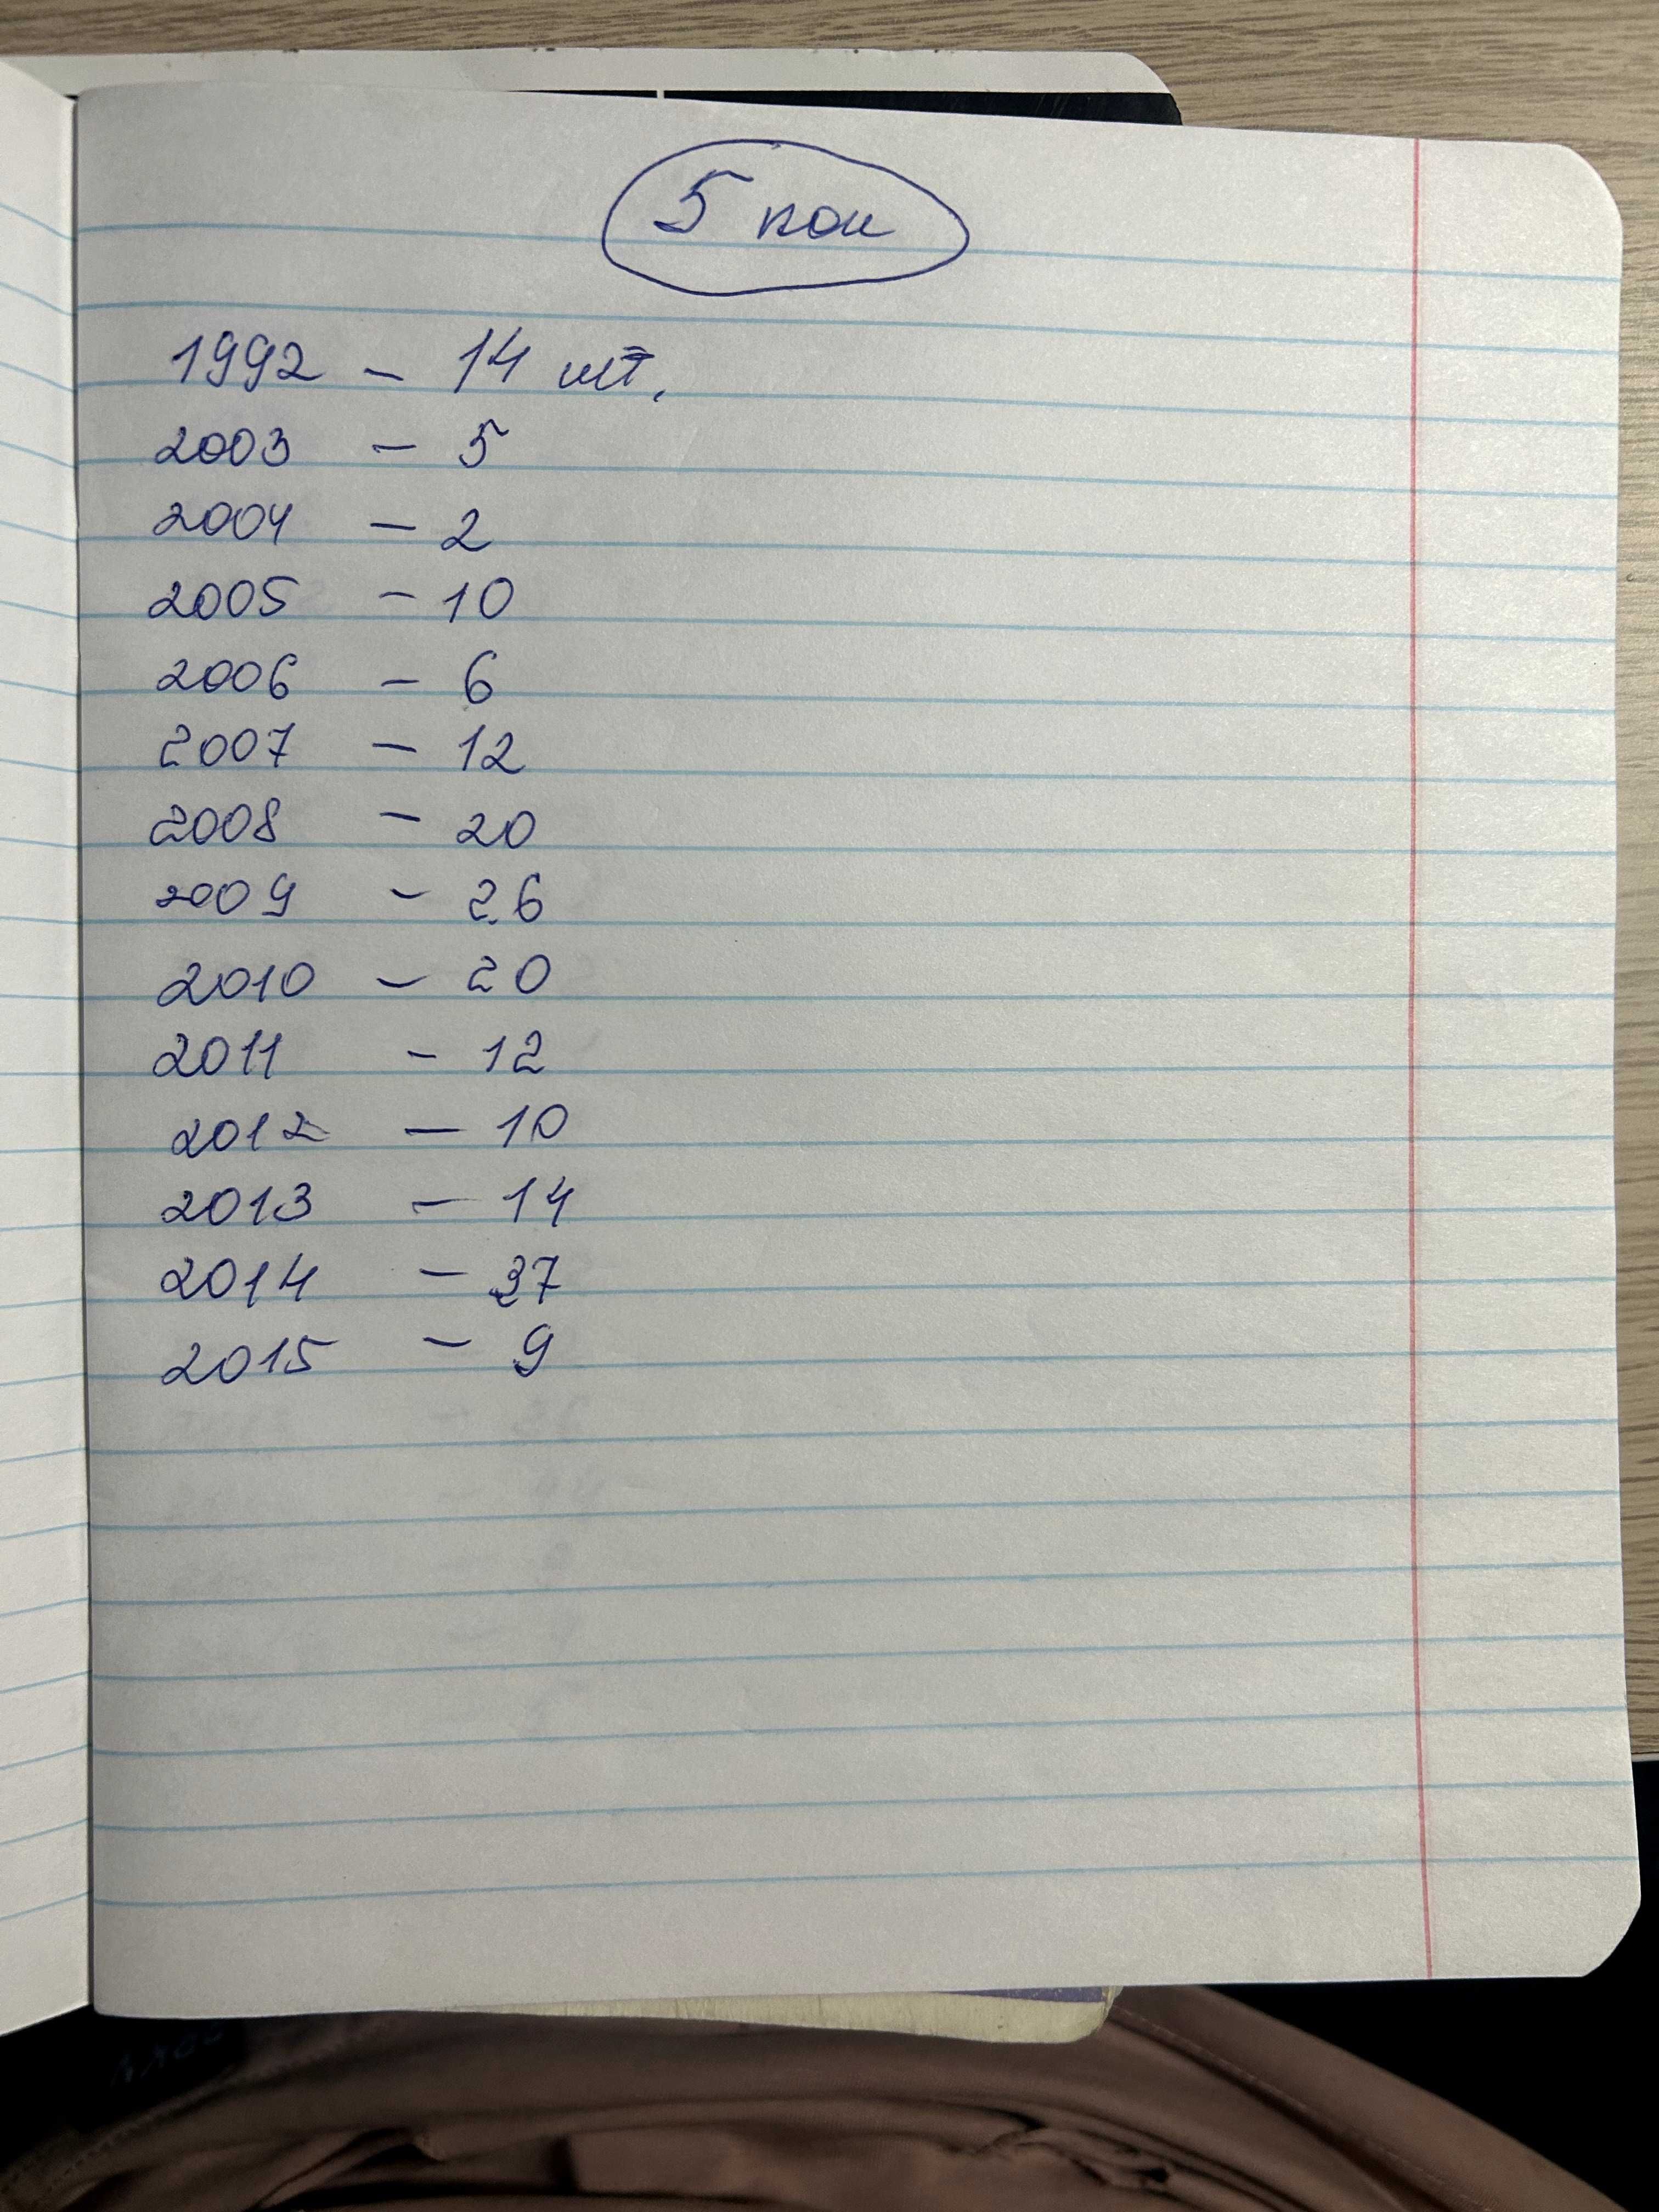 5 коп
1992 - 14 шт.
2003 - 5
2004 - 2
2005 - 10
2006 - 6
2007 - 12
2008 - 20
2009 - 26
2010 - 20
2011 - 12
2012 - 10
2013 - 14
2014 - 37
2015 - 9